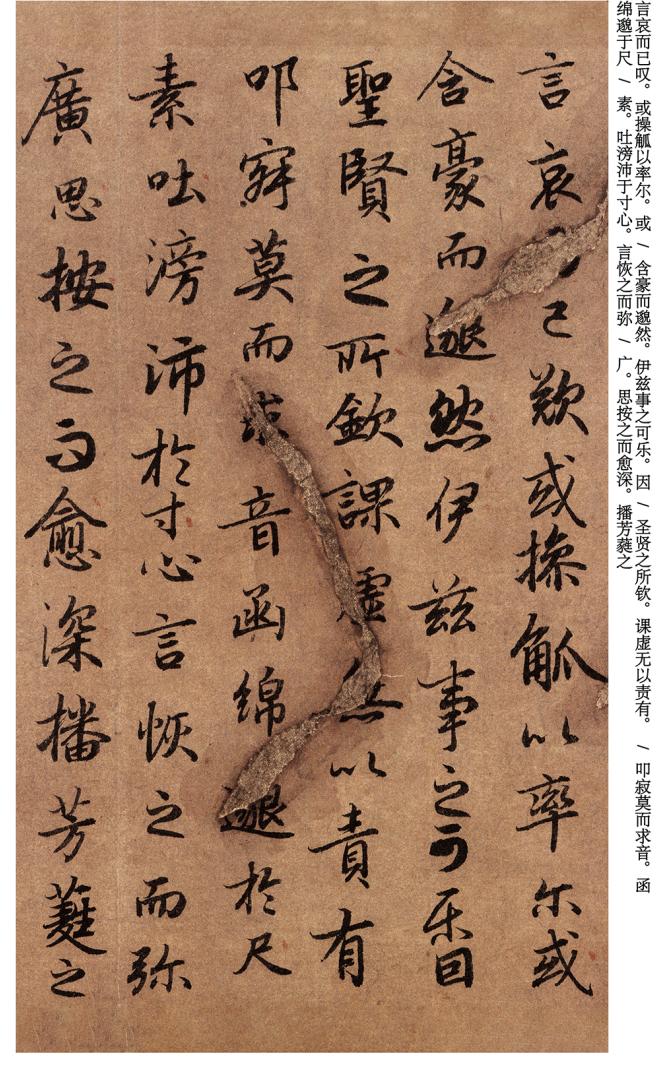 言哀而已叹。或操觚以率尔。或 / 含豪而邈然。伊兹事之可乐。因 / 圣贤之所钦。课虚无以责有。 / 叩寂莫而求音。函
绵邈于尺 / 素。吐滂沛于寸心。言恢之而弥 / 广。思按之而愈深。播芳蕤之
言哀而已歎或操觚以率尔或
含豪而邈然伊兹事之可乐因
聖賢之所欽課虛無以責有
叩寂莫而求音函綿邈於尺
素吐滂沛於寸心言恢之而弥
廣思按之而愈深播芳蕤之